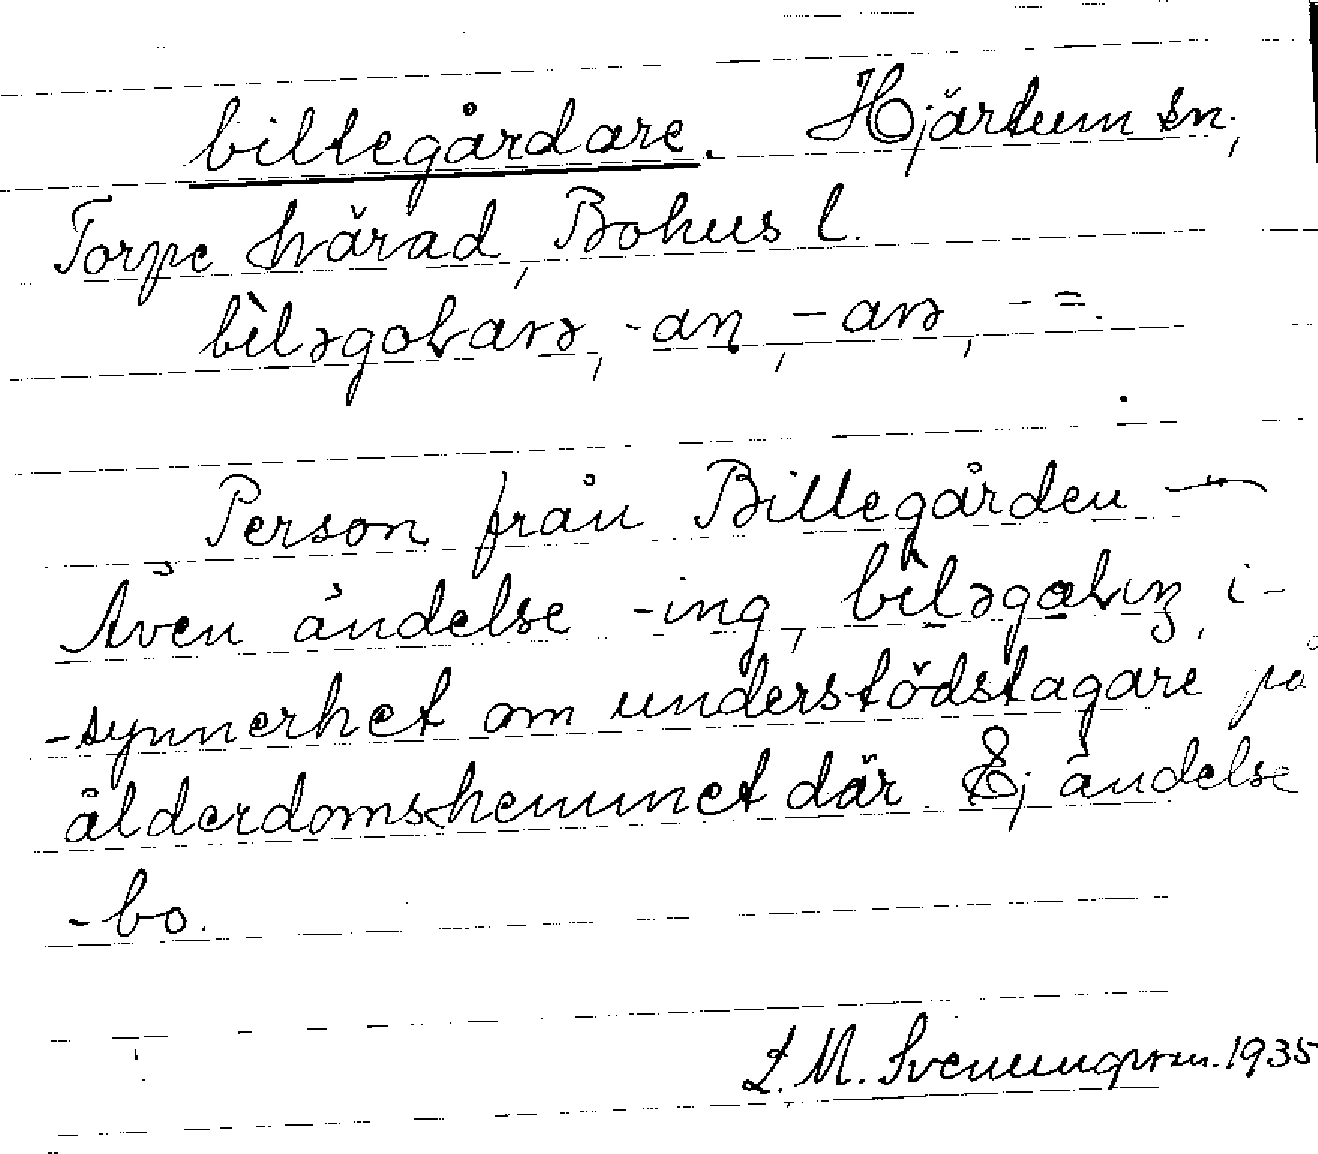 billegårdare. Hjärtum sn,
Torpe härad, Bohus l.
bìləgoɽarə, -aɳ, -arə, - =.
Person från Billegården —
Även ändelse -ing, bìləgoɽıŋ, i-
-synnerhet om understödstagare på
ålderdomshemmet där Ej ändelse
-bo.
L. M. Svenungsson. 1935